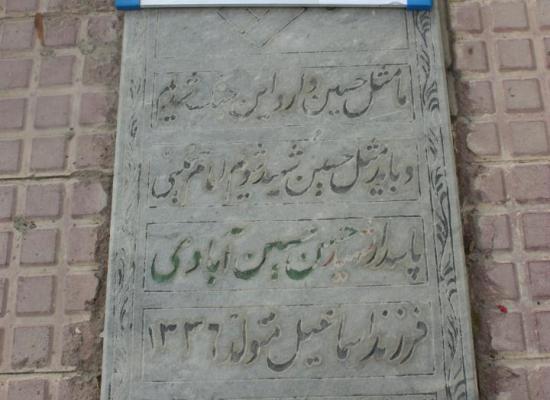 ما مثل حسین وارد این جنگ شدیم
و باید مثل حسین شهید شویم امام خمینی
پاسدار شهید حسین آبادی
فرزند اسماعیل متولد ۱۳۳۶